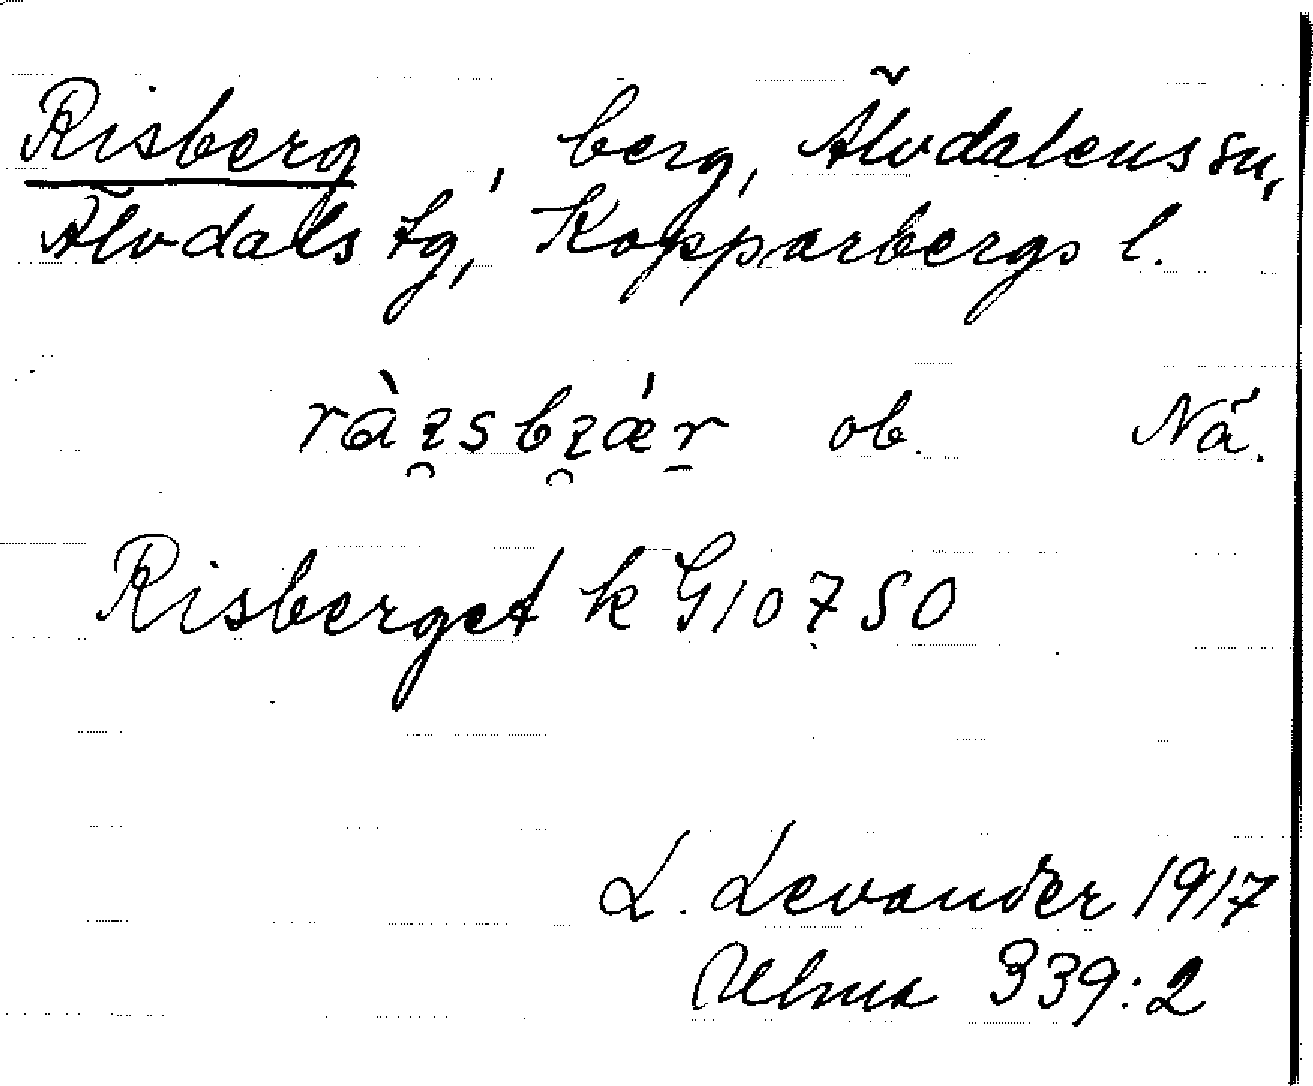 Risberg, berg, Älvdalens sn,
Älvdals tg, Kopparbergs l.
ob. Nä.
Risberget k G10750
L. Levander 1917
Ulma 339:2